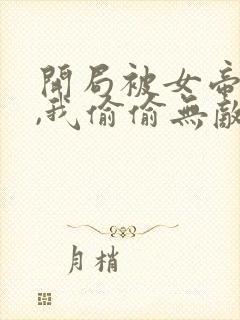 開局被女帝
,我偷偷無敵
月梢